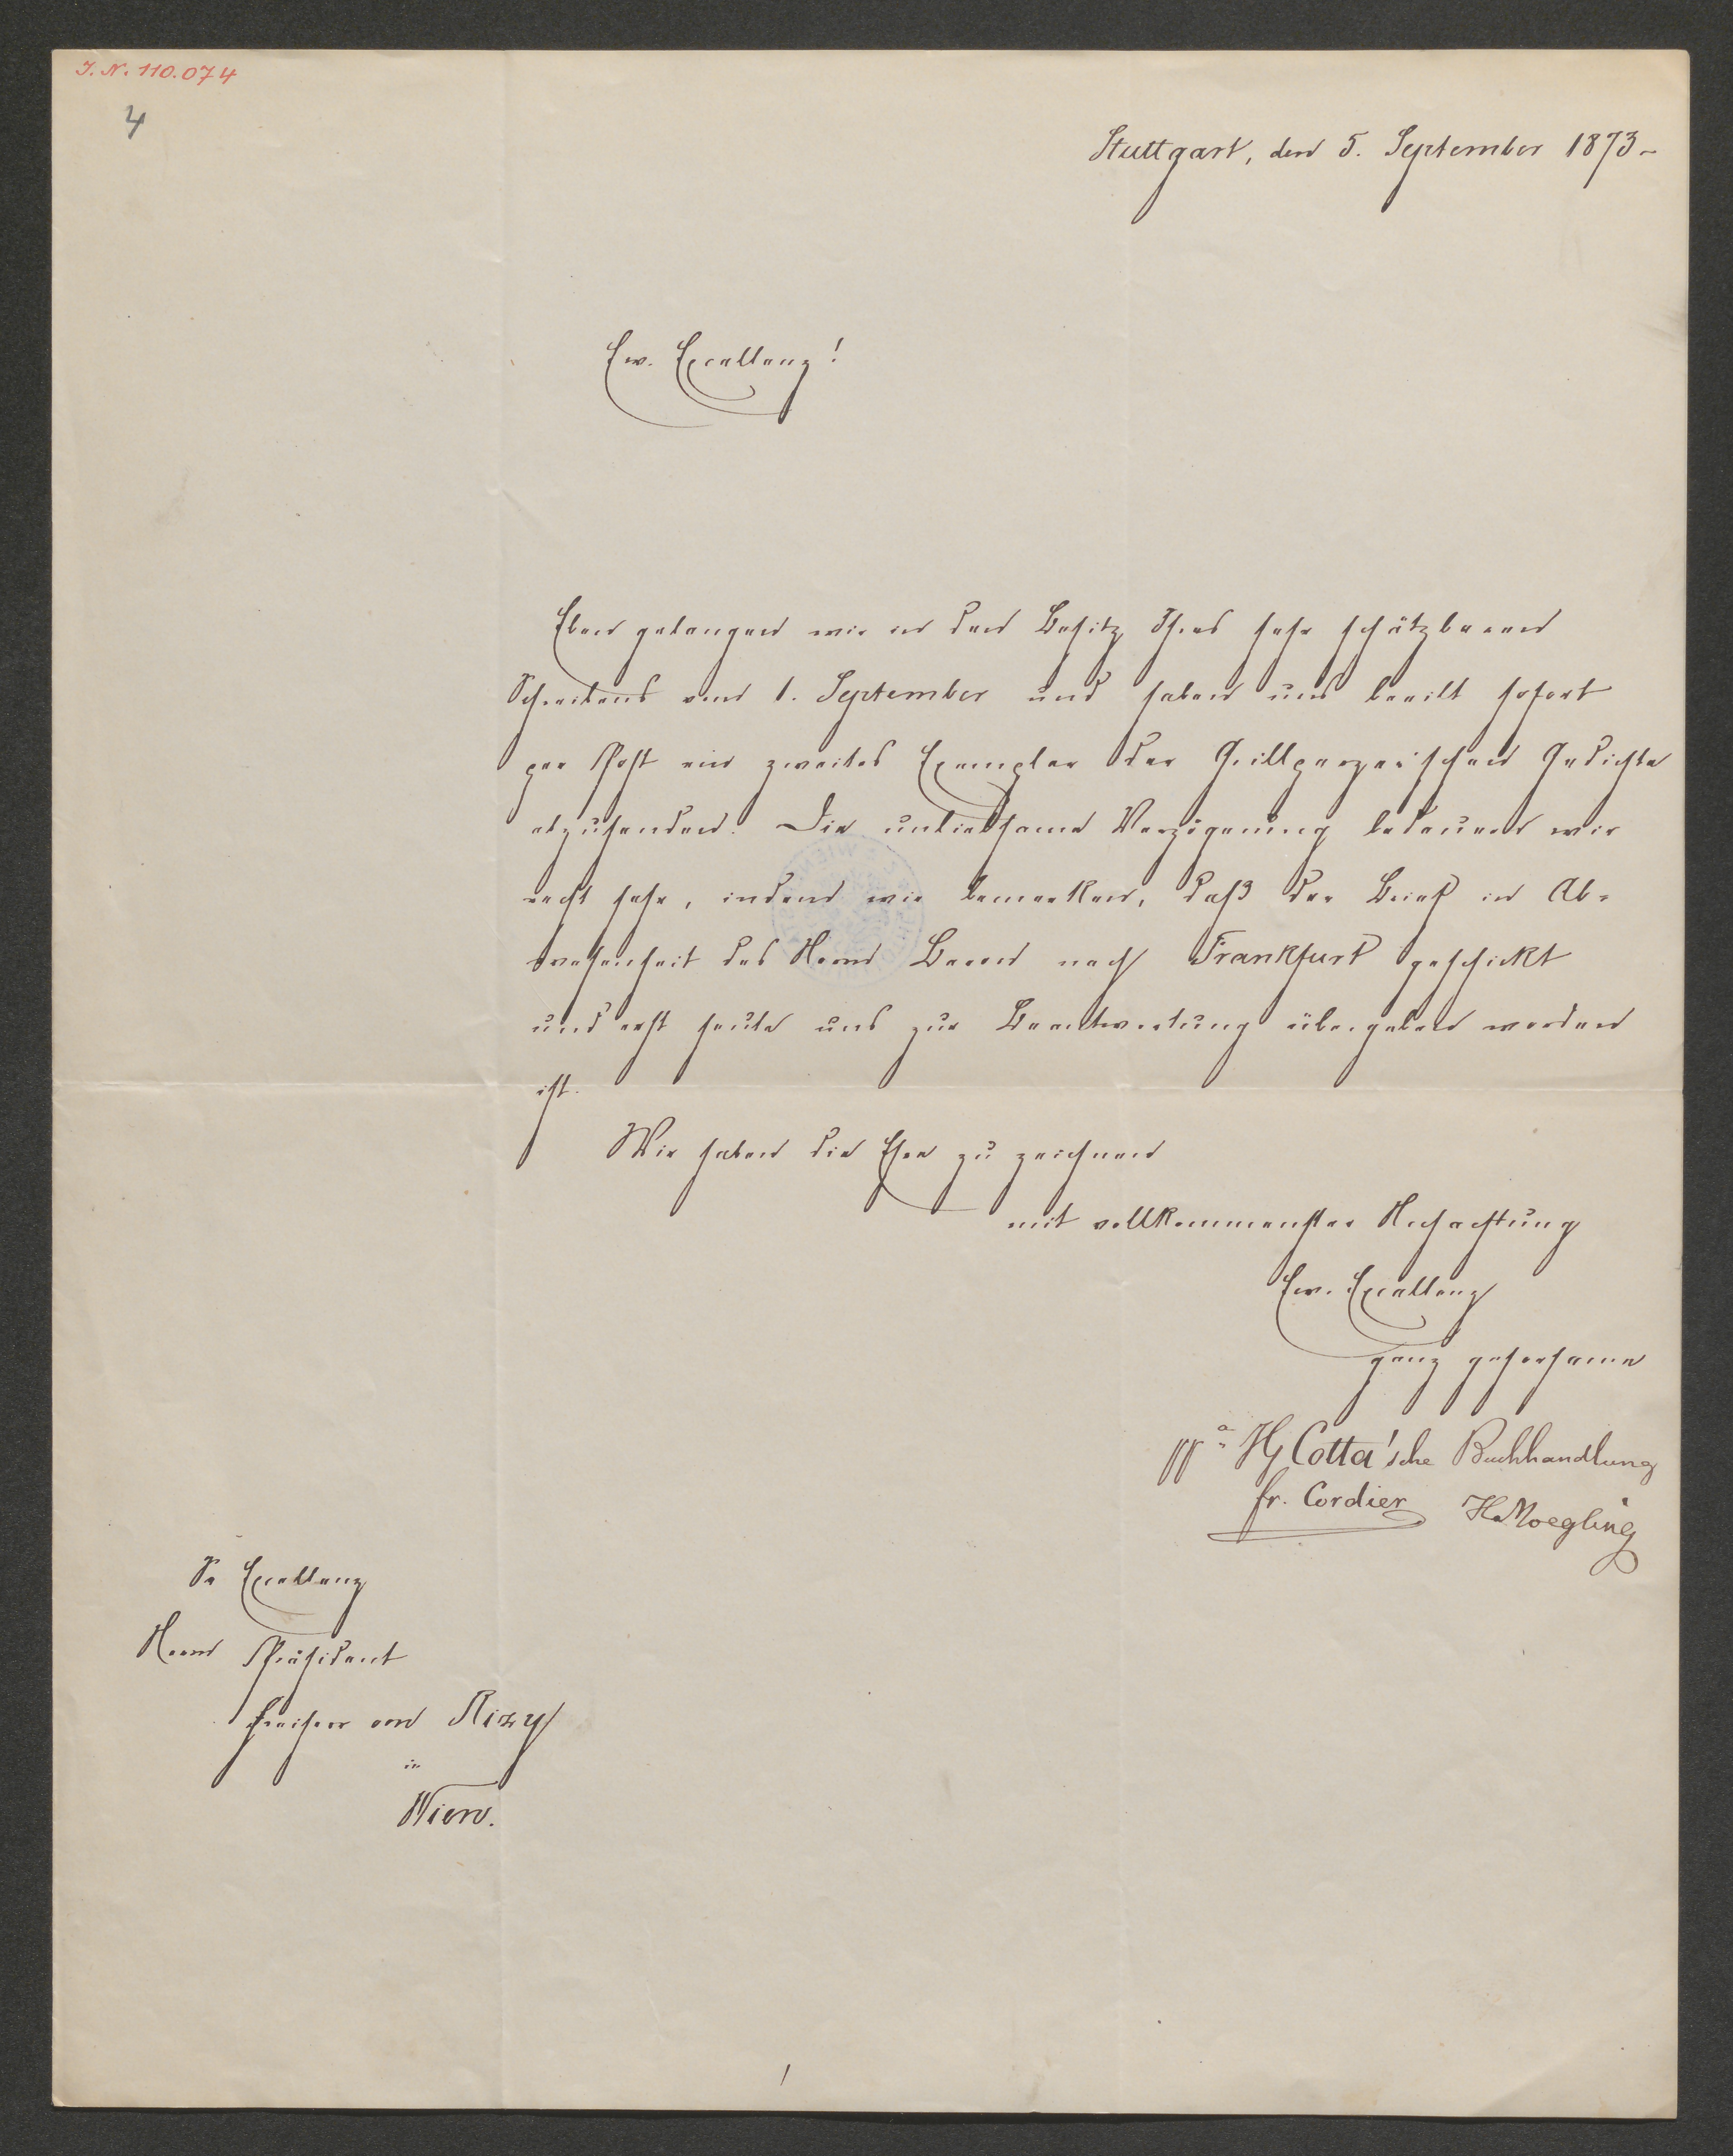 J. N. 110.074
4
Stuttgart, den 5. September 1873-
Ew. Excellenz!
Eben gelangen wir in den Besitz Ihres sehr schätzbaren
Schreibens vom 1. September und haben uns beeilt sofort
per Post ein zweites Exemplar der Grillparzerischen Gedichte
abzusenden. Die unliebsame Verzögerung bedauern wir
recht sehr, indem wir bemerken, daß der Brief in Ab-
wesenheit des Herrn Baron nach Frankfurt geschickt
und erst heute uns zur Beantwortung übergeben worden
ist.
Wir haben die Ehre zu zeichnen
mit vollkommenster Hochachtung
Ew. Excellenz
ganz gehorsame
ppa JG Cotta'sche Buchhandlung
fr. Cordier HMoegling
Se Excellenz
Herrn Präsident
Freiherr von Rizy
in
Wien.
1